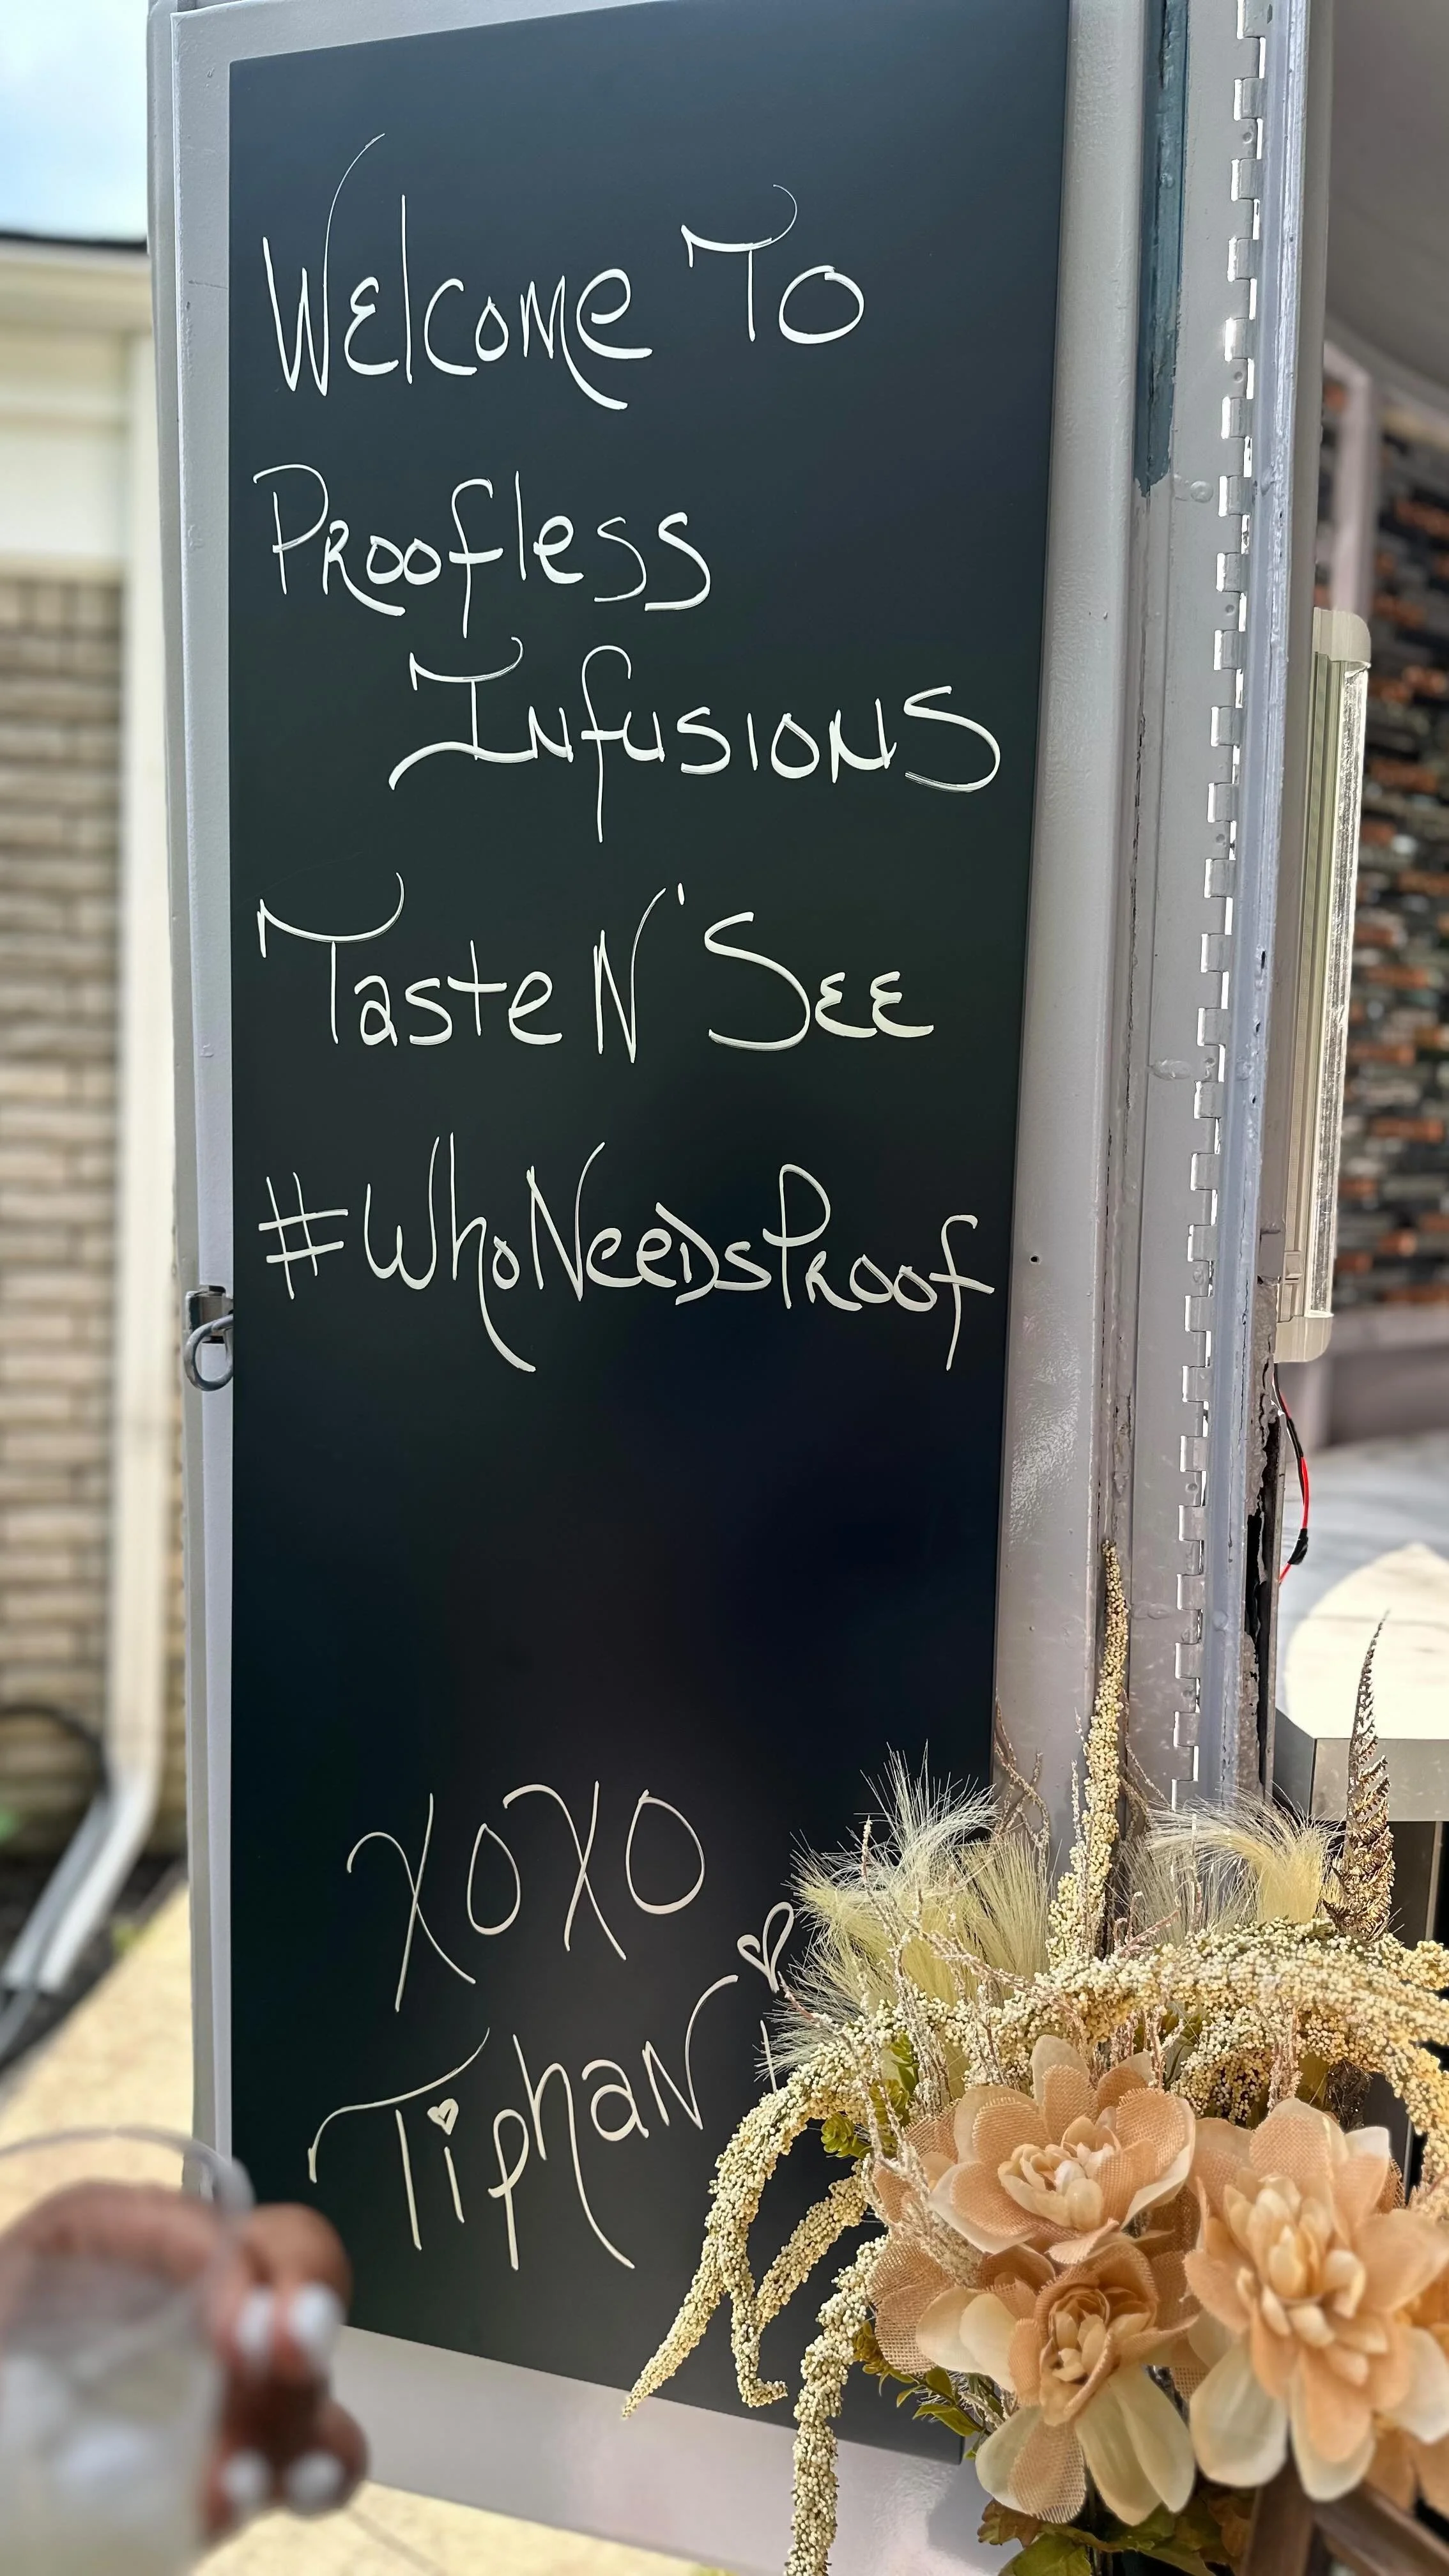 Welcome To
Proofless
Infusions
Taste N' See
#WhoNeedsProof
XOXO
Tiphani